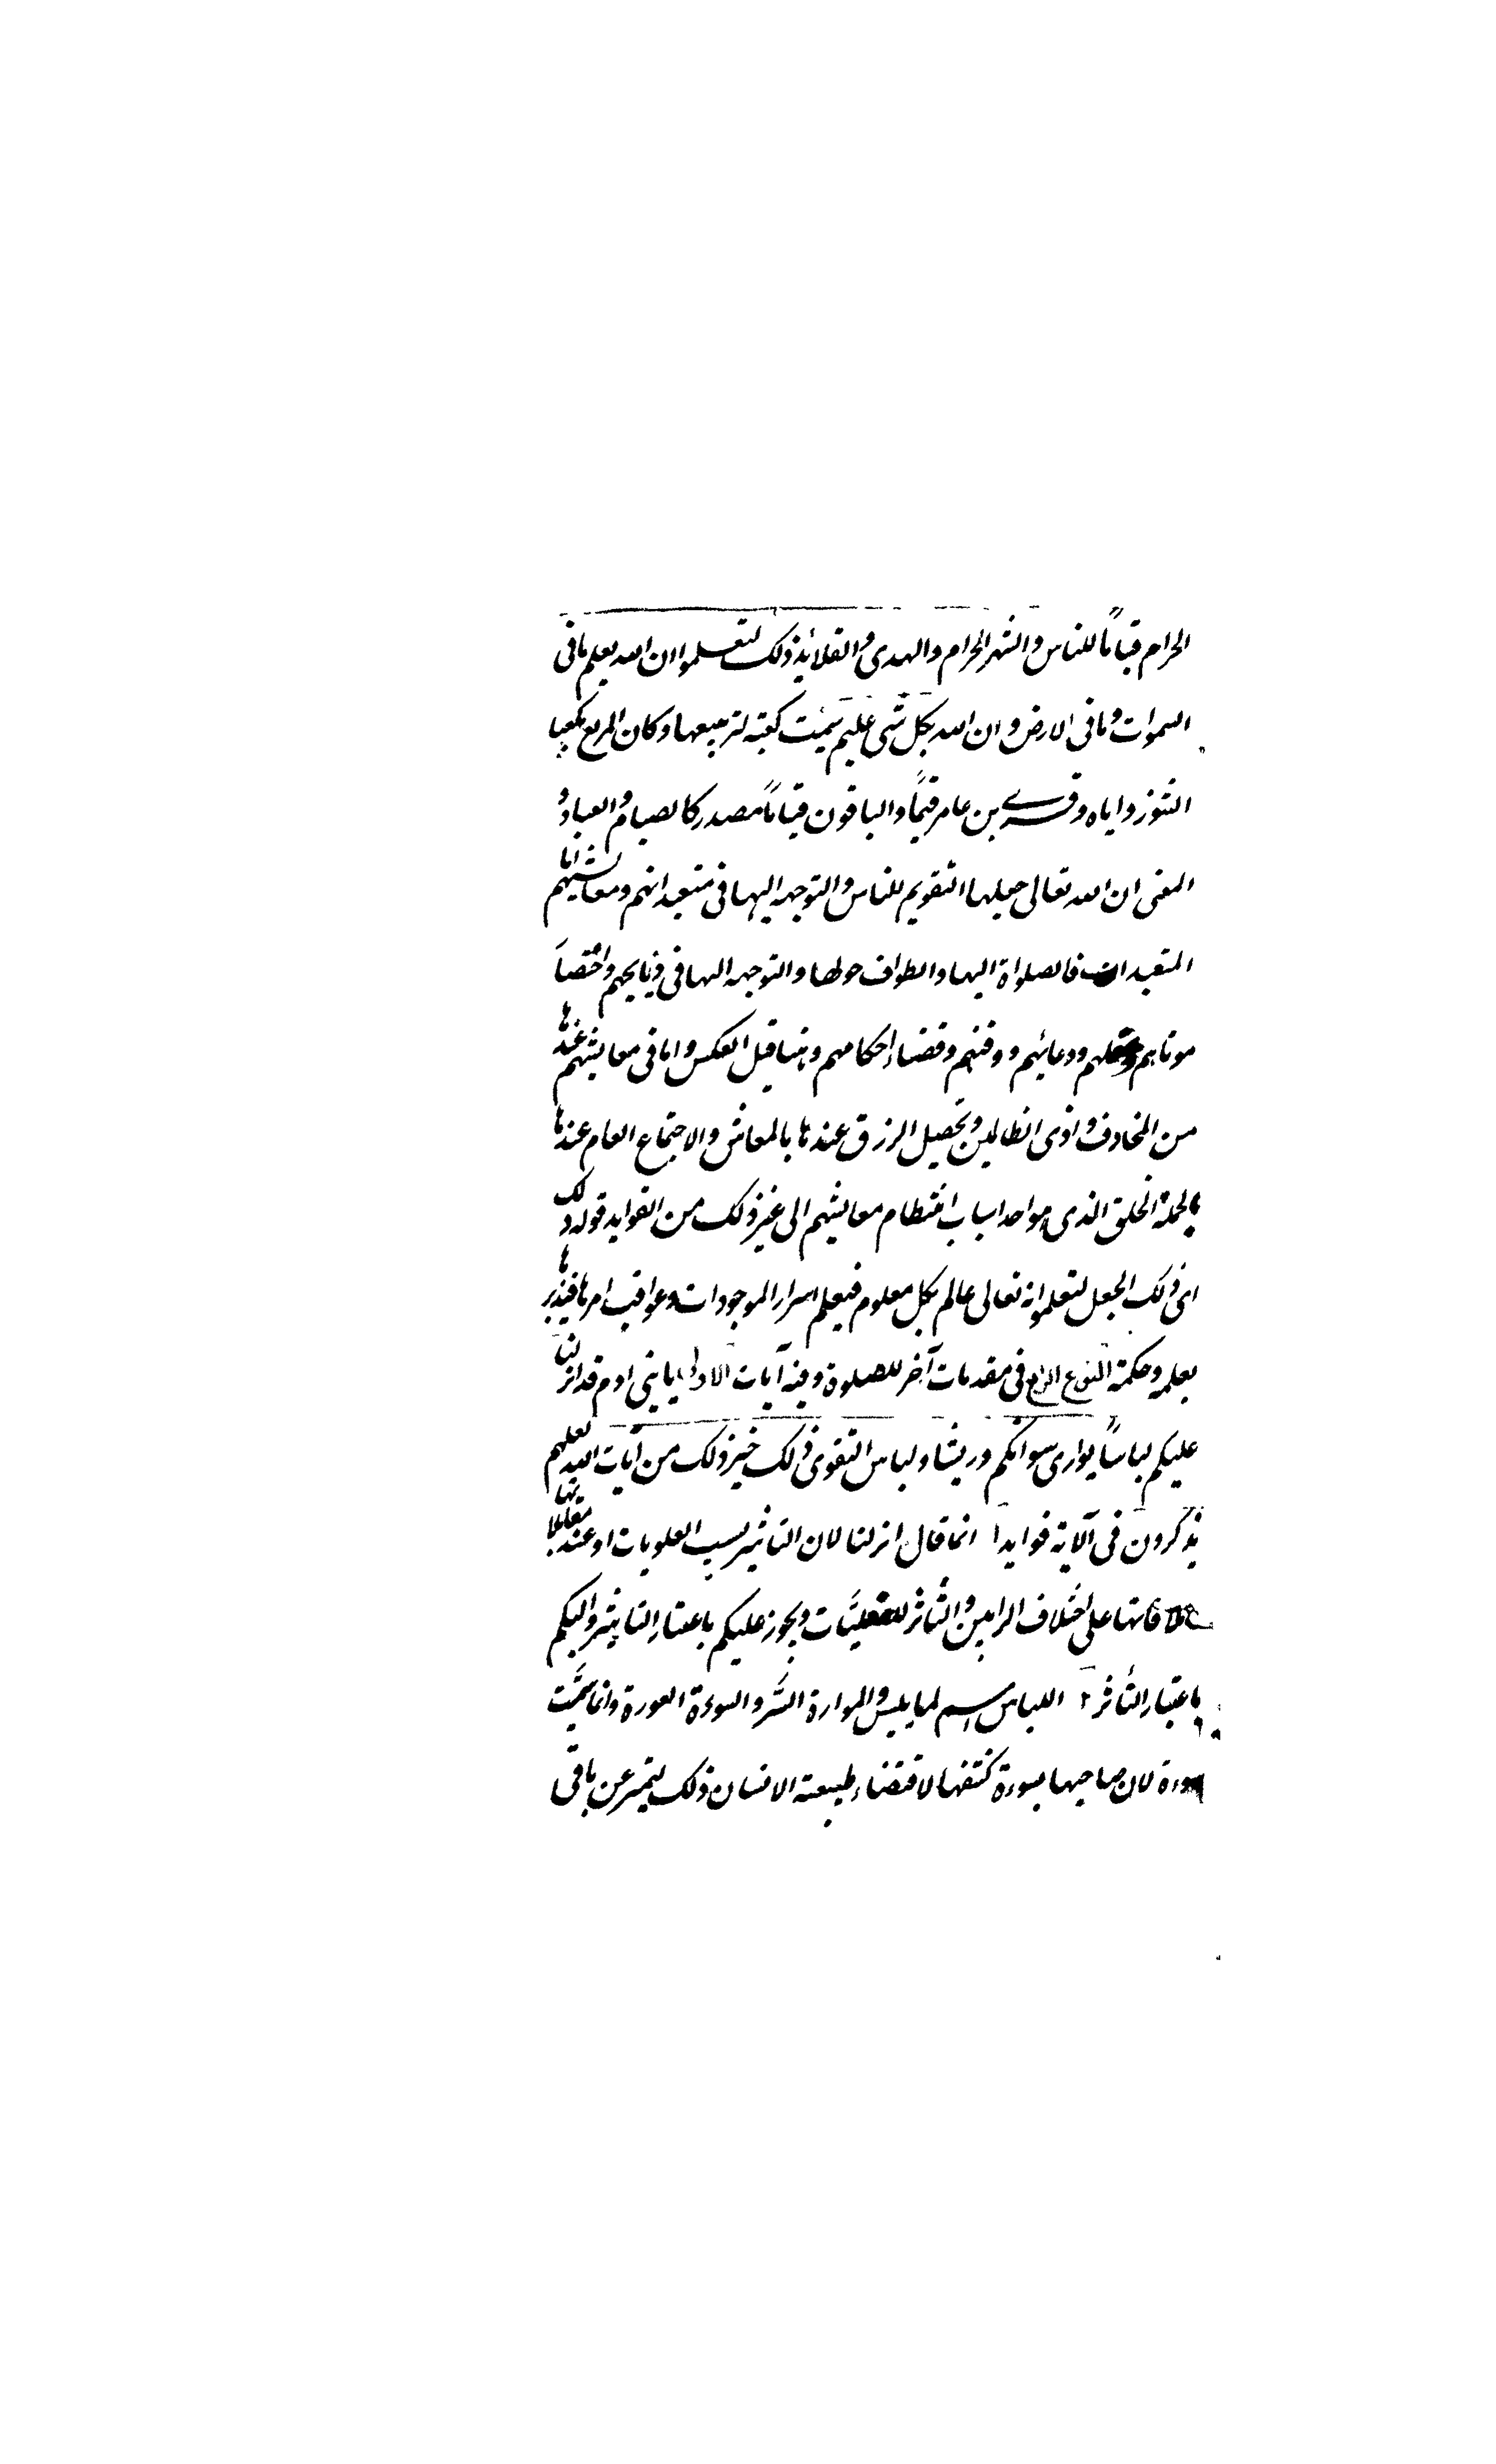 الحرام قياماً للناس والشهر الحرام والهدى والقلائد ذلك لتعلموا ان الله يعلم ما فى
السموات وما فى الارض وان الله بكل شى عليم سميت كعبة لتربيعها وكان المربع كعبا
واياه وقرء بن عامر قيماً والباقون قياماً مصدر كالصيام والعياد و
المعنى ان الله تعالى جعلها لتقويم للناس والتوجه اليها فى متعبداتهم ومعايشهم اما
المتعبدات فالصلواة اليها والطواف حولها والتوجه اليها فى ذبايحهم واختصا
موتاهم ودعائهم ودفنهم وقضاء احكامهم وهنا قيل العكس واما فى معايشهم عندها
من المخاوف واذى الظالمين وتحصيل الرزق عندها بالمعاش والاجتماع العام عندها
بجملة الخلق الذى هو احد اسباب انتظام معايشهم الى غير ذلك من الفوايد قوله ذلك
اى ذلك الجعل لتعلموا انه تعالى عالم بكل معلوم فيعلم اسرار الموجودات وعواقب امرها فيدبرها
بعلمه وحكمة النوع الرابع فى مقدمات آخر للصلوة وفيه آيات الاولى يا بنى ادم قد انزلنا
عليكم لباساً يوارى سواتكم وريشا ولباس التقوى ذلك خير ذلك من آيات الله لعلهم
يذكرون فى الآية فوايد ا انما قال انزلنا لان التاثير بسبب العلويات او عند مقابلاتها
على اختلاف الرايين والتاثر للسفليات ويجوز عليكم باعتبار التاثير واليكم
باعتبار التأثر ٢ اللباس اسم لما يلبس والموارة الستر والسوءة العورة وانما سميت
سوءة لان صاحبها يسوءة كشفها لاقتضاء طبيعة الانسان ذلك ليتميز عن باقى